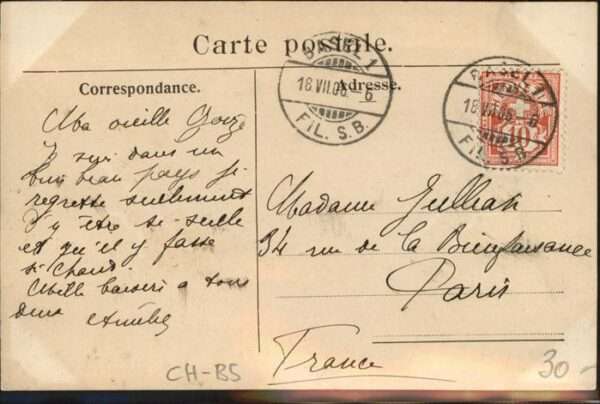 Carte postale.
Correspondance.
Adresse.
BASEL 1
18.VII.06.-6
FIL. S.B.
BASEL 1
18.VII.06.-6
FIL. S.B.
10
Ma vieille
J suis dans un
bien beau pays je
regrette seulement
d'y être si seule
et qu'il y fasse
si chaud.
Mille baisers a tous
deux
Madame Jullian
34 rue de la Bienfaisance
Paris
France
CH-BS
30-